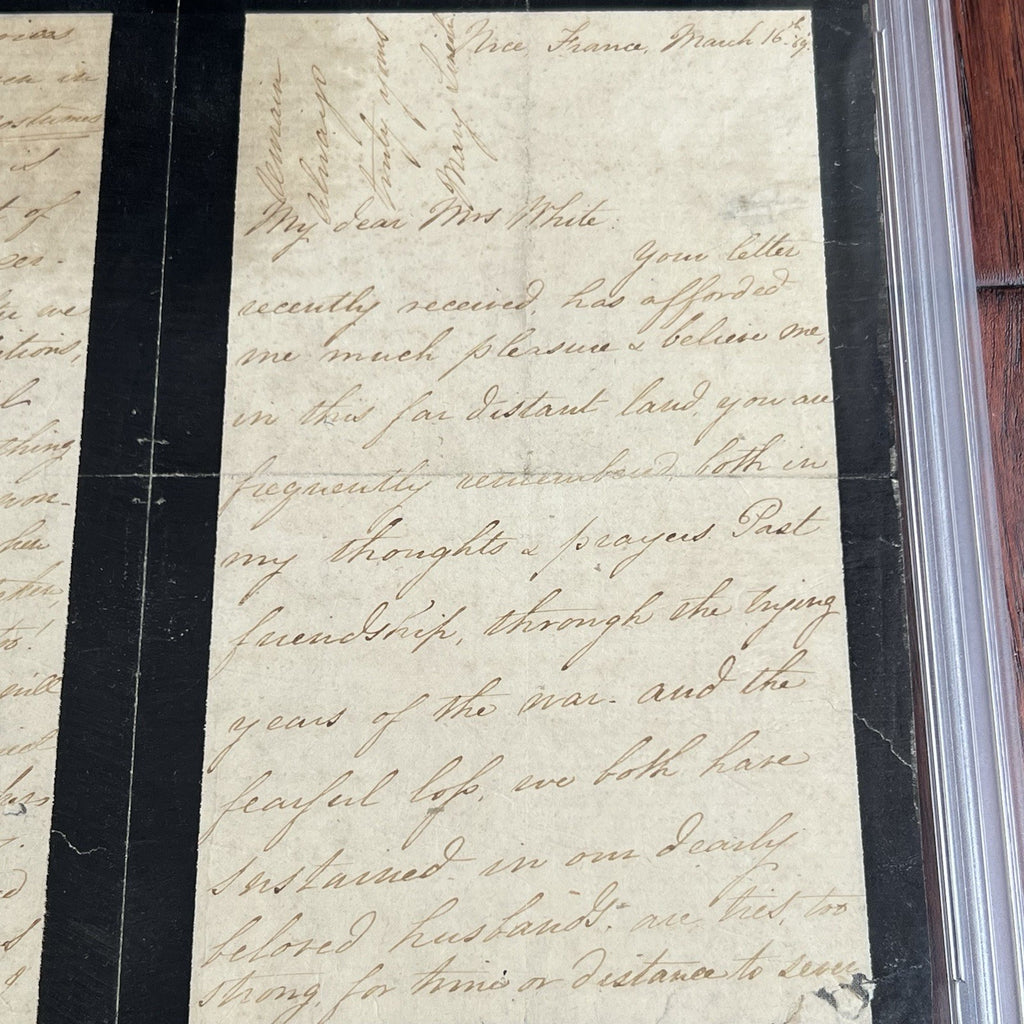 Nice, France, March 16th 69.
remain
always
truly yours
Mary Lincoln
My dear Mrs White.
Your letter
recently received, has afforded
me much pleasure & believe me,
in this far distant land, you are
frequently remembered, both in
my thoughts & prayers. Past
friendship, through the trying
years of the war - and the
fearful loss, we both have
sustained in our dearly
beloved husbands - are ties, too
strong, for time or distance to sever
ostumes
is
t of
we
itions,
thing
hee
will